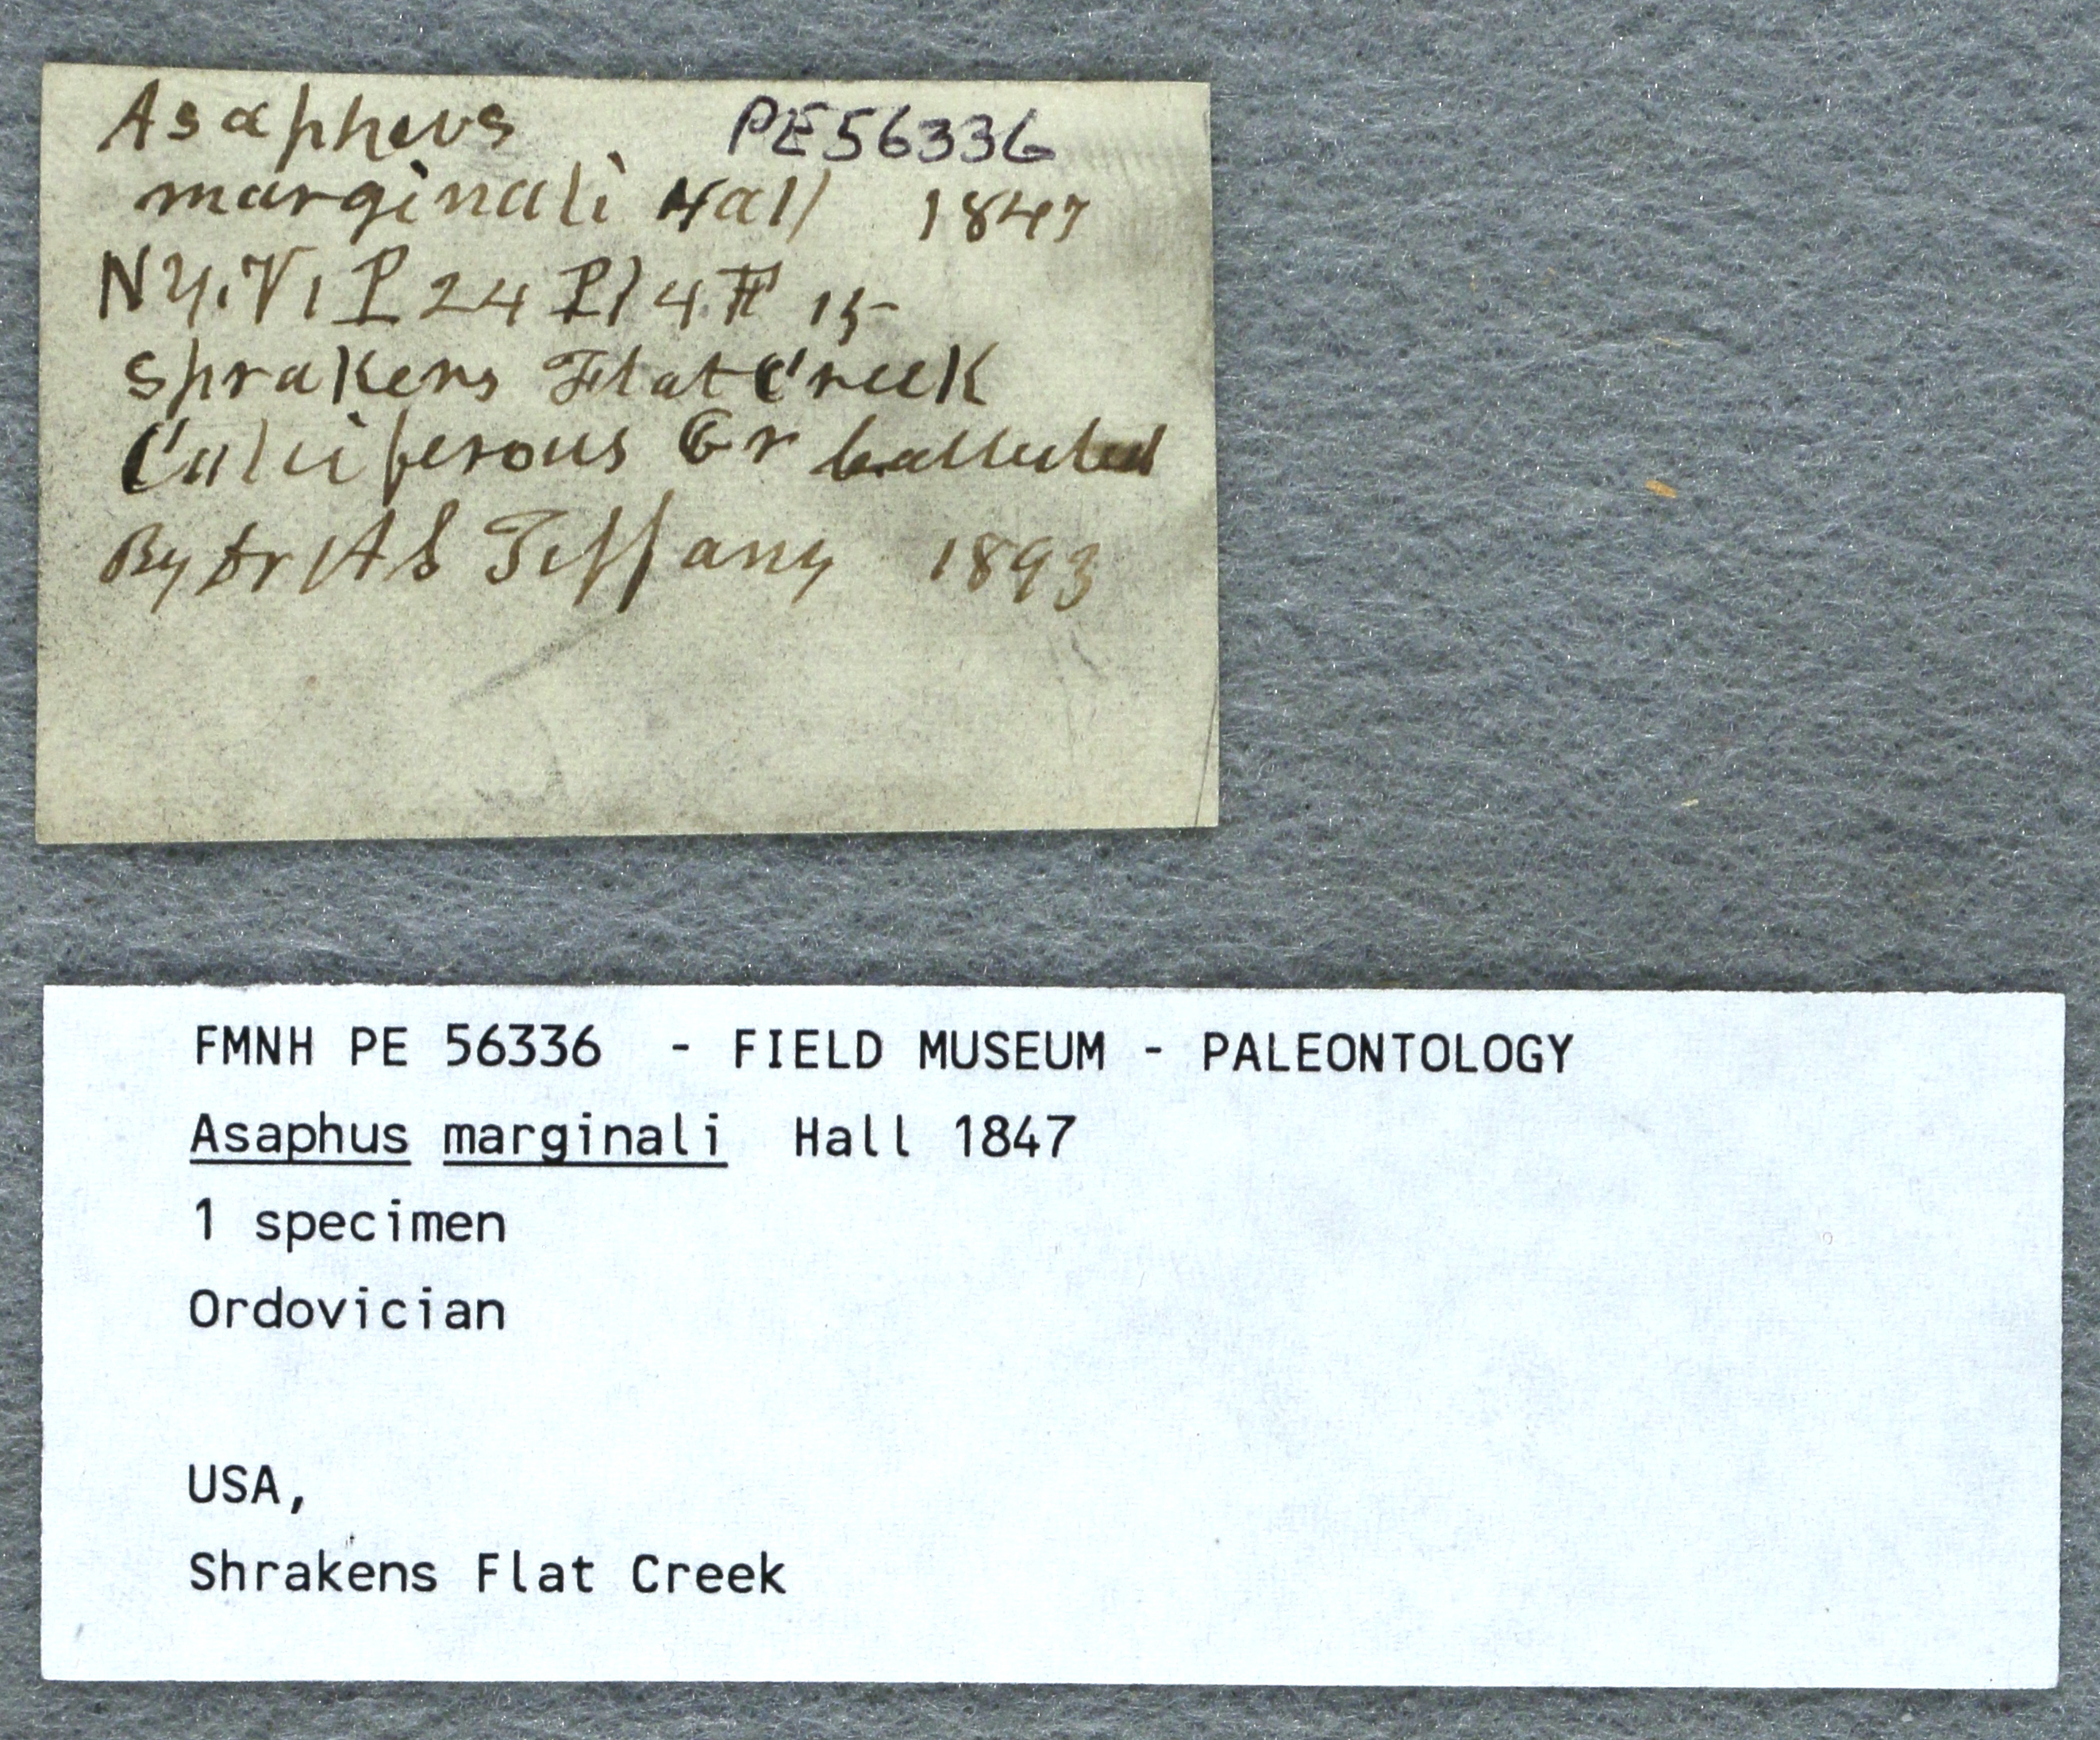 Asaphus PE56336
marginali Hall 1847
NY. V1 P 24 Pl 4 F 15
Sprakers Flat Creek
Calciferous Gr Collected
By Dr AS Tiffany 1893
FMNH PE 56336 - FIELD MUSEUM - PALEONTOLOGY
Asaphus marginali Hall 1847
1 specimen
Ordovician
USA,
Shrakens Flat Creek